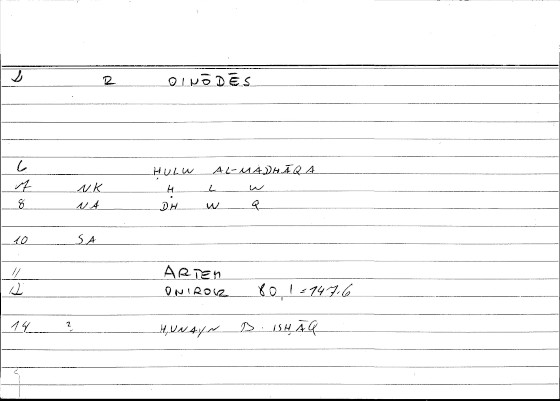 R OINŌDĒS
6 ḤULW AL-MADHĀQA
7 NK Ḥ L W
8 NA DH W Q
10 SA
11 ARTEM
12 ONIROCR 80,1=147.6
14 ? ḤUNAYN B. ISḤĀQ